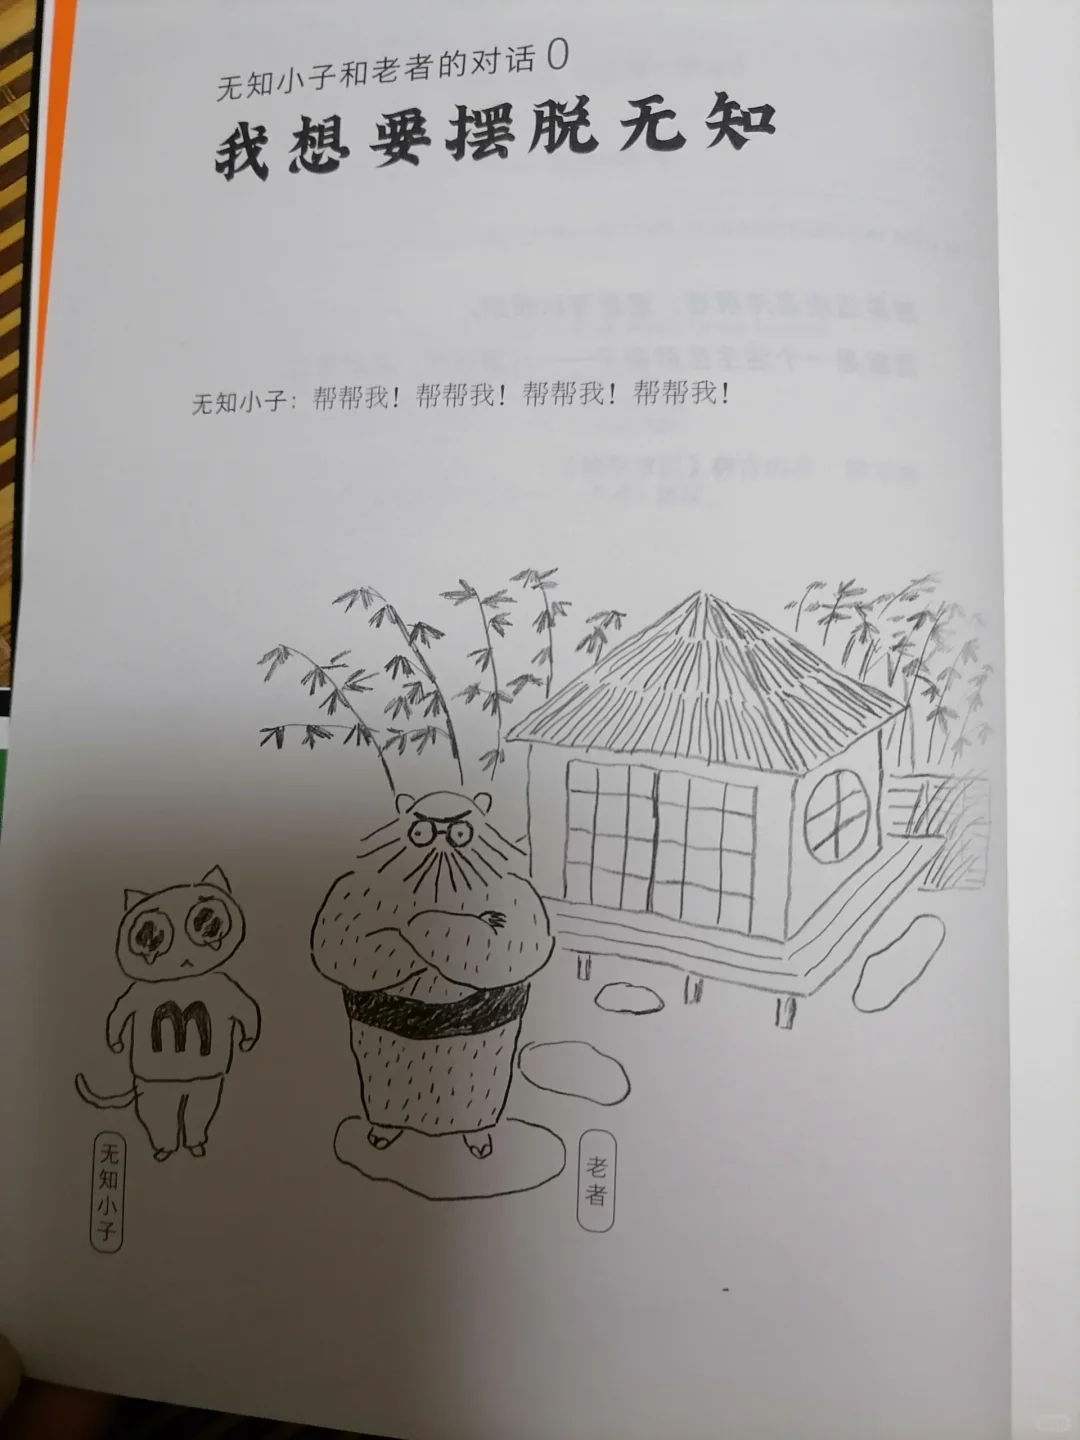 无知小子和老者的对话0
我想要摆脱无知
无知小子：帮帮我！帮帮我！帮帮我！帮帮我！
m
无知小子
老者